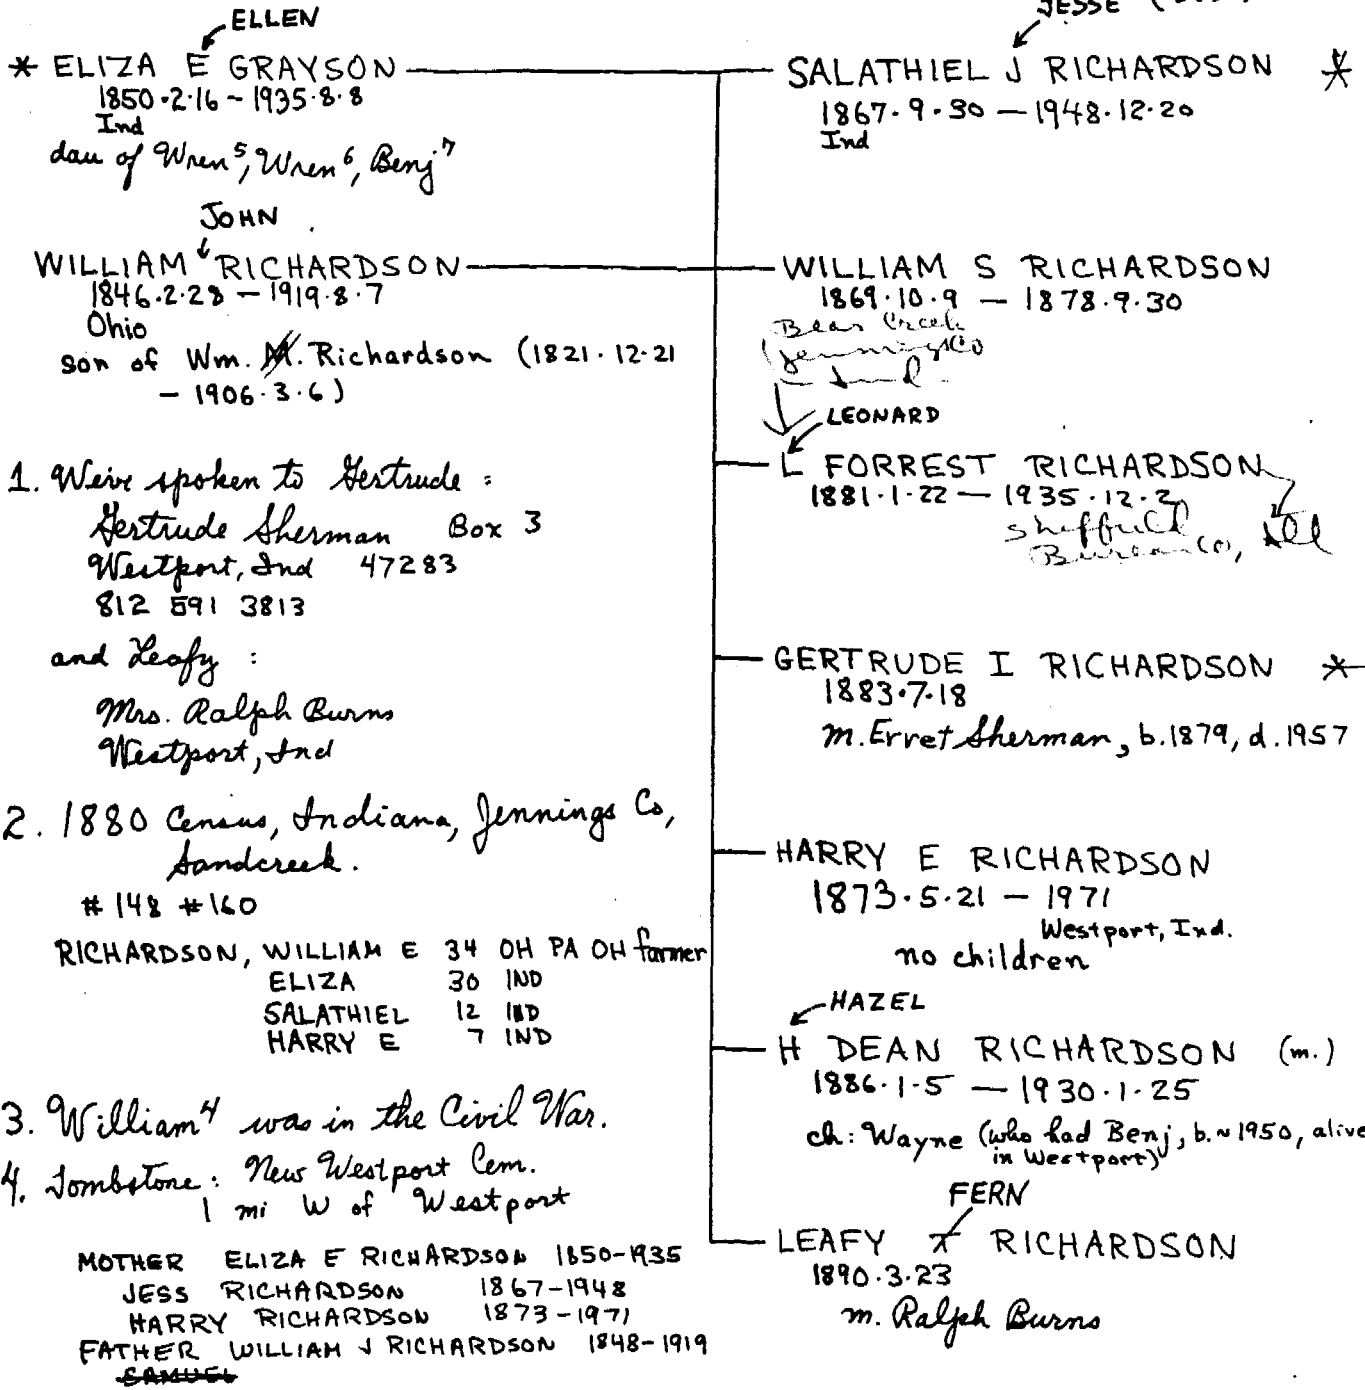 ELLEN
* ELIZA E GRAYSON
1850·2·16 ~ 1935·8·8
Ind
dau of Wren⁵, Wren⁶, Benj⁷
JOHN
WILLIAM RICHARDSON
1846·2·28 — 1919·8·7
Ohio
son of Wm. M. Richardson (1821·12·21
— 1906·3·6)
1. We've spoken to Gertrude :
Gertrude Sherman Box 3
Westport, Ind 47283
812 591 3813
and Leafy :
Mrs. Ralph Burns
Westport, Ind
2. 1880 Census, Indiana, Jennings Co,
Sandcreek.
# 148 # 160
RICHARDSON, WILLIAM E 34 OH PA OH farmer
ELIZA 30 IND
SALATHIEL 12 IND
HARRY E 7 IND
3. William⁴ was in the Civil War.
4. Tombstone: New Westport Cem.
1 mi W of Westport
MOTHER ELIZA E RICHARDSON 1850-1935
JESS RICHARDSON 1867-1948
HARRY RICHARDSON 1873-1971
FATHER WILLIAM J RICHARDSON 1848-1919
SAMUEL
JESSE
SALATHIEL J RICHARDSON *
1867·9·30 — 1948·12·20
Ind
WILLIAM S RICHARDSON
1869·10·9 — 1878·9·30
Bear Creek
Jennings Co
Ind
LEONARD
L FORREST RICHARDSON
1881·1·22 — 1935·12·2
Sheffield
Bureau Co, Ill
GERTRUDE I RICHARDSON *
1883·7·18
m. Erret Sherman, b. 1879, d. 1957
HARRY E RICHARDSON
1873·5·21 — 1971
Westport, Ind.
no children
HAZEL
H DEAN RICHARDSON (m.)
1886·1·5 — 1930·1·25
ch: Wayne (who had Benj, b. ~ 1950, alive
in Westport)
FERN
LEAFY F RICHARDSON
1890·3·23
m. Ralph Burns